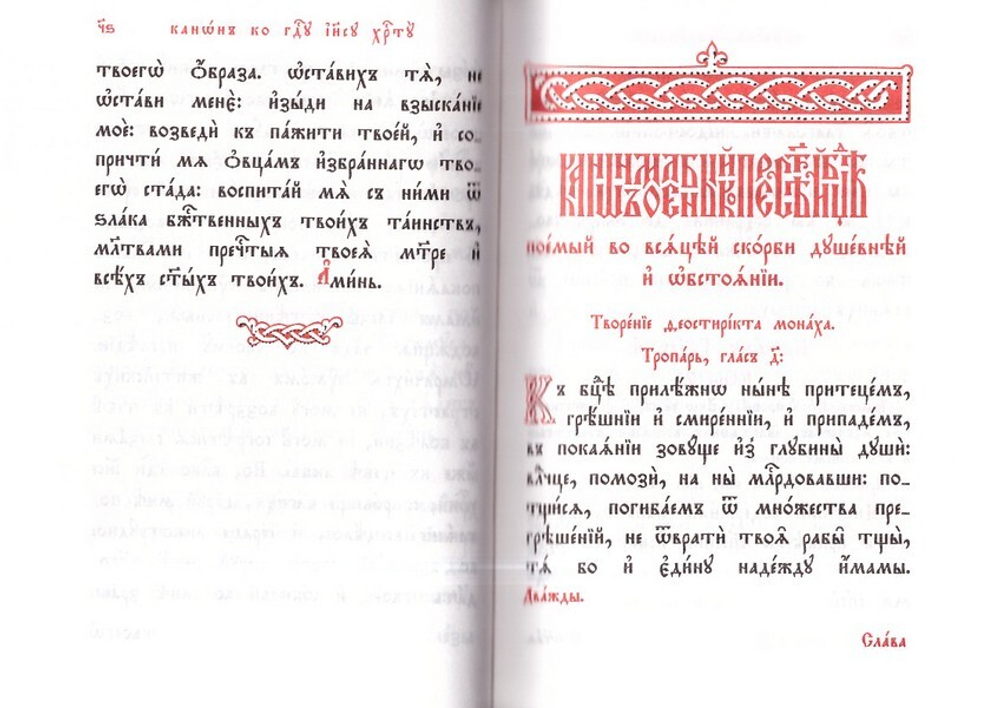 ч҃ѕ
канѡ́нъ ко гдⷭ҇ꙋ і҆и҃сꙋ хрⷭ҇тꙋ̀
твоегѡ̀ ѻ҆́браза. ѡ҆ста́вихъ тѧ̀, не
ѡ҆ста́ви менє̀: и҆зы́ди на взыска́нїе
моѐ: возведѝ къ па́жити твое́й, и҆ со_
причти́ мѧ ѻ҆вца́мъ и҆збра́ннагѡ тво_
егѡ̀ ста́да: воспита́й мѧ̀ съ ни́ми ѿ
ѕла́ка бж҃е́ственныхъ твои́хъ та́инствъ,
мл҃твами пречⷭ҇тыѧ твоеѧ̀ мт҃ре и҆
всѣ́хъ ст҃ы́хъ твои́хъ. А҆ми́нь.
поє́мый во всѧ́цѣй ско́рби дꙋше́внѣй
и҆ ѡ҆бстоѧ́нїи.
Творе́нїе ѳеостири́кта мона́ха.
Тропа́рь, гла́съ д҃:
Къ бцⷣѣ приле́жнѡ ны́нѣ притеце́мъ,
грѣ́шнїи и҆ смире́ннїи, и҆ припаде́мъ,
въ покаѧ́нїи зовꙋ́ще и҆з̾ глꙋбины̀ дꙋшѝ:
влⷣчце, помозѝ, на ны̀ млⷭ҇рдовавши: по_
тщи́сѧ, погиба́емъ ѿ мно́жества пре_
грѣше́нїй, не ѿвратѝ твоѧ̀ рабы̑ тщы̀,
тѧ́ бо и҆ є҆ди́нꙋ наде́ждꙋ и҆́мамы.
Два́жды.
Сла́ва